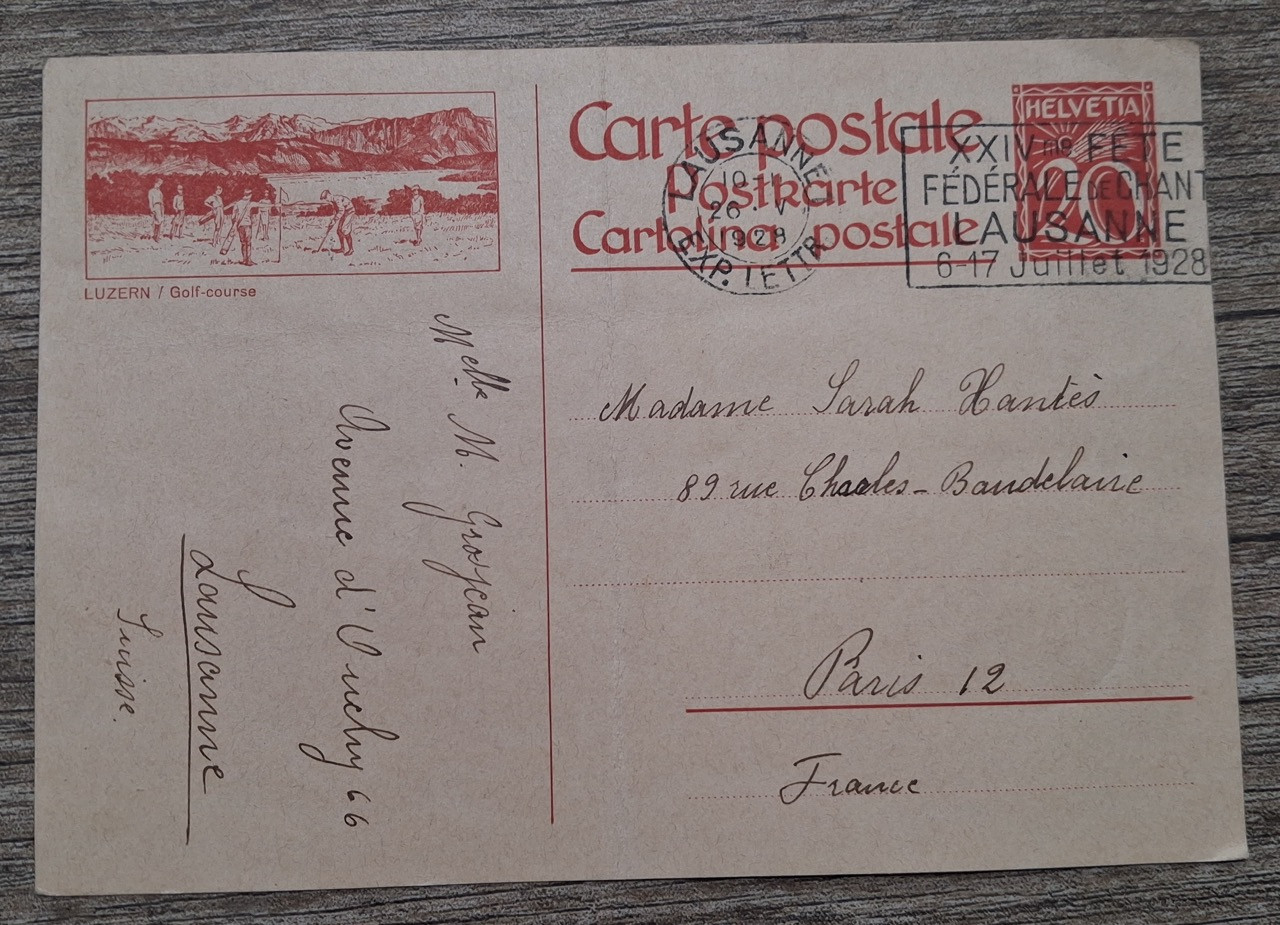 Carte postale
Postkarte
Cartolina postale
HELVETIA
20
LAUSANNE
26 · V
1928
EXP. LETTR.
XXIVme FÊTE
FÉDÉRALE DE CHANT
LAUSANNE
6-17 Juillet 1928
LUZERN / Golf-course
Melle M. Grosjean
Avenue d'Ouchy 66
Lausanne
Suisse.
Madame Sarah Hantès
89 rue Charles-Baudelaire
Paris 12
France